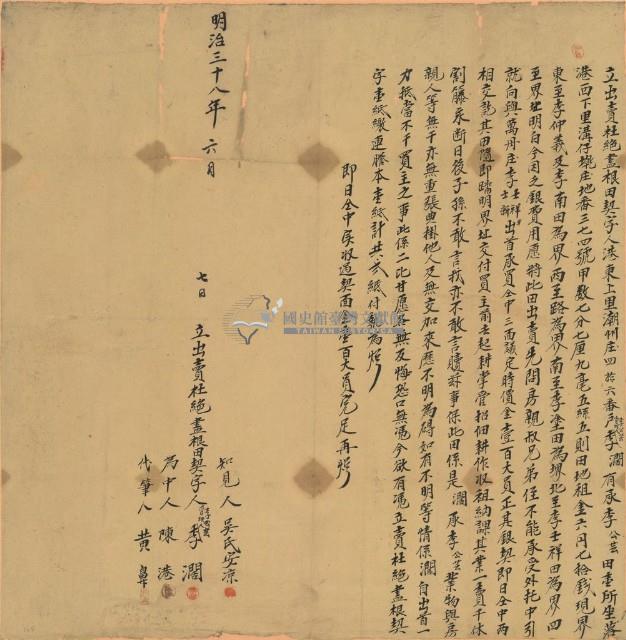 立出賣杜絕盡根田契字人港東上里潮州庄四拾六番戶李濶有承李公芸田壹所坐落
港西下里溝仔墘庄地番三七四號甲數七分七厘九毫五絲五則田地租金六円七拾錢現界
東至李仲義及李南田為界西至路為界南至李塗田為界北至李壬祥田為界四
至界址明白今因乏銀費用愿將此田出賣先問房親叔兄弟侄不能承受外托中引
就向與萬丹庄李壬祥出首承買仝中三面議定時價金壹百大員正其銀契即日仝中兩
相交訖其田隨即踏明界址交付買主前去起耕掌管招佃耕作收租納課其業一賣千休
割籐永斷日後子孫不敢言找亦不敢言贖滋事保此田係是濶承李公芸業物與房
親人等無干亦無重張典掛他人及無交加來歷不明為碍如有不明等情係濶自出首一
力抵當不干買主之事此係二比甘愿各無反悔恐口無憑今欲有憑立賣杜絕盡根契
字壹紙繳連謄本壹紙計共弍紙付執為炤
即日仝中房收過契面金壹百大員完足再炤
知見人 吳氏安涼
立出賣杜絕盡根田契字人 李濶
為中人 陳港
代筆人 黃鼻
明治三十八年 六月 七日
國史館臺灣文獻館
TAIWAN HISTORICA